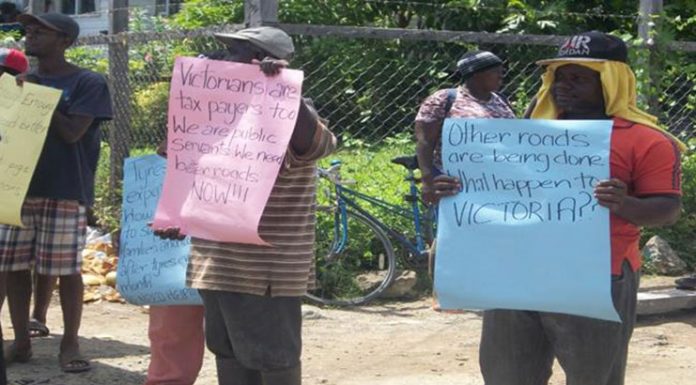 Victorians are
tax payers too
We are public
Servants We need
better roads
NOW!!!
Other roads
are being done.
What happen to
VICTORIA??
Tyres
How
families
after tyres
month
AIR
JORDAN